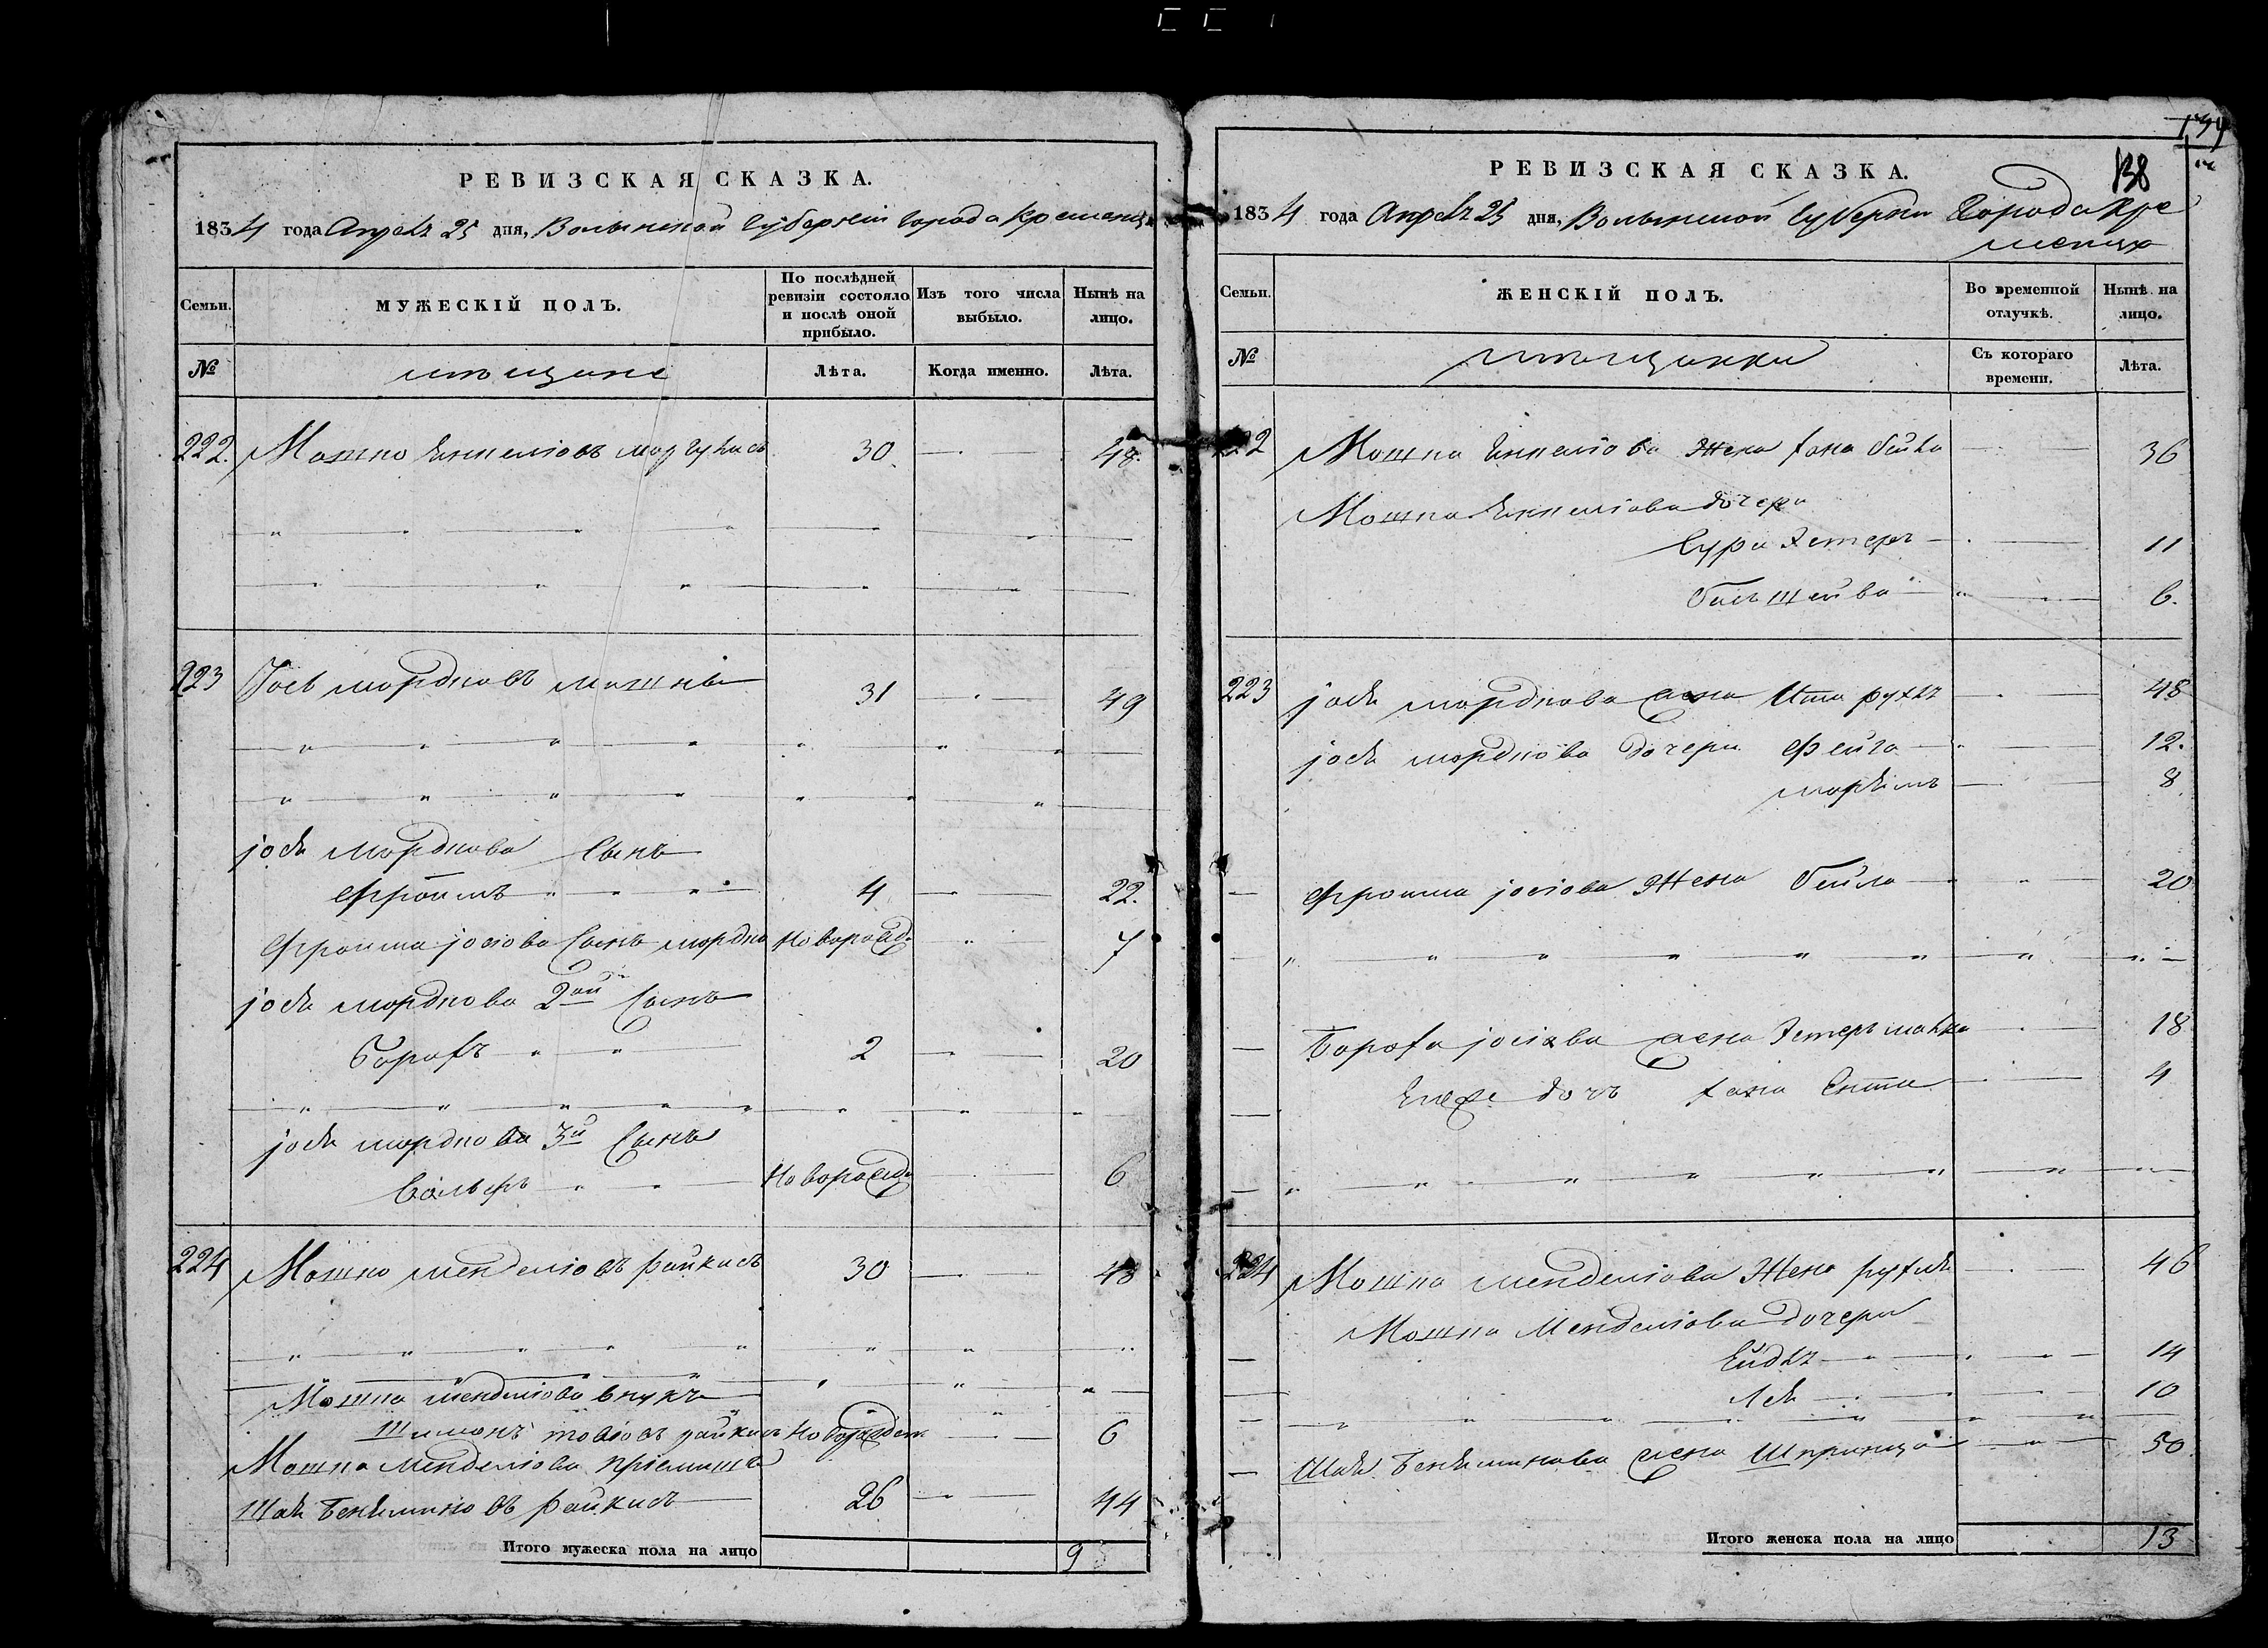 РЕВИЗСКАЯ СКАЗКА.
1834 года Апреля 25 дня, Волынской Губернiи Города Кременца
Семьи.
МУЖЕСКIЙ ПОЛЪ.
По послѣдней ревизiи состояло и послѣ оной прибыло.
Изъ того числа выбыло.
Нынѣ на лицо.
№
мѣщане
Лѣта.
Когда именно.
Лѣта.
222. Мошко 30 — 48.
223 Іось мордковъ 31 — 49
јося мордкова Сынъ
Фроимъ 4 — 22.
Фроима јосiова Сынъ мордко Новорожд. 7
јося мордкова 2ой Сынъ
Борохъ 2 — 20
јося мордкова 3й Сынъ
Вольфъ Новорожд. 6
224 Мошко менделiовъ райкисъ 30 — 48
Мошка менделiова внукъ
Шимонъ райкисъ Новорожден. 6
Мошка Менделiова прiемышъ
Шая Бенямино въ райкисъ 26 — 44
Итого мужеска пола на лицо 9
139
138
РЕВИЗСКАЯ СКАЗКА.
1834 года Апреля 25 дня, Волынской Губернiи Города Кре
менца
Семьи.
ЖЕНСКIЙ ПОЛЪ.
Во временной отлучкѣ.
Нынѣ на лицо.
№
мѣщанки
Съ котораго времени.
Лѣта.
222 Мошка жена хана бейла 36
Мошка дочери
Сура Эстеръ 11
батшейва 6.
223 јося мордкова жена Ита рухля 48
јося мордкова дочери Фейга 12.
марьямъ 8
Фроима јосiова Жена бейла 20
Бороха јосiова жена Эстеръ малка 18
Ежеже дочъ хана Ента 4
224 Мошка менделiова Жена рухля 46
Мошка Менделiова дочери
Ейдля 14
Лея 10
Шаи Беняминова жена Шпринца 50
Итого женска пола на лицо 13